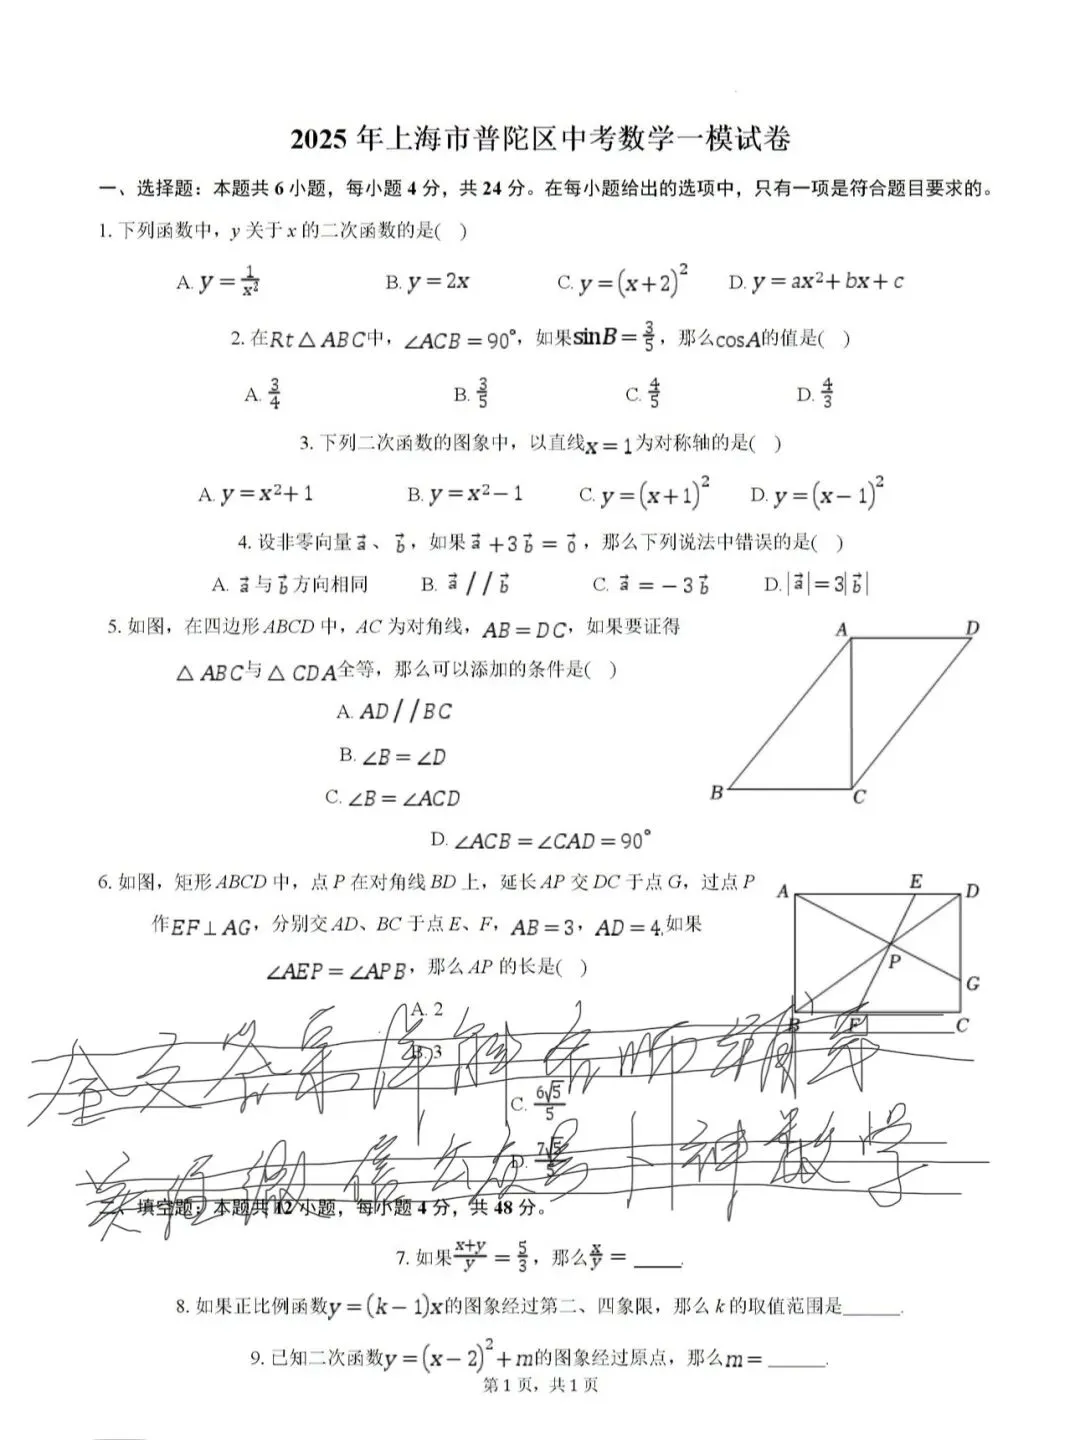 2025年上海市普陀区中考数学一模试卷
一、选择题：本题共6小题，每小题4分，共24分。在每小题给出的选项中，只有一项是符合题目要求的。
1. 下列函数中，y关于x的二次函数的是( )
A. y = 1/x² B. y = 2x C. y = (x+2)² D. y = ax²+bx+c
2. 在Rt△ABC中，∠ACB = 90°，如果sinB = 3/5，那么cosA的值是( )
A. 3/4 B. 3/5 C. 4/5 D. 4/3
3. 下列二次函数的图象中，以直线x = 1为对称轴的是( )
A. y = x²+1 B. y = x²−1 C. y = (x+1)² D. y = (x−1)²
4. 设非零向量a⃗、b⃗，如果a⃗+3b⃗ = 0⃗，那么下列说法中错误的是( )
A. a⃗与b⃗方向相同 B. a⃗//b⃗ C. a⃗ = −3b⃗ D. |a⃗| = 3|b⃗|
5. 如图，在四边形ABCD中，AC为对角线，AB = DC，如果要证得
△ABC与△CDA全等，那么可以添加的条件是( )
A. AD//BC
B. ∠B = ∠D
C. ∠B = ∠ACD
D. ∠ACB = ∠CAD = 90°
A D
B C
6. 如图，矩形ABCD中，点P在对角线BD上，延长AP交DC于点G，过点P
作EF⊥AG，分别交AD、BC于点E、F，AB = 3，AD = 4,如果
∠AEP = ∠APB，那么AP的长是( )
A. 2
B. 3
C. 6√5/5
D. 7√5/5
A E D
P
G
B F C
全文答案详解名师辅导
关注微信公众号卜神数学
二、填空题：本题共12小题，每小题4分，共48分。
7. 如果(x+y)/y = 5/3，那么x/y = ____.
8. 如果正比例函数y = (k−1)x的图象经过第二、四象限，那么k的取值范围是______.
9. 已知二次函数y = (x−2)²+m的图象经过原点，那么m = ______.
第1页，共1页